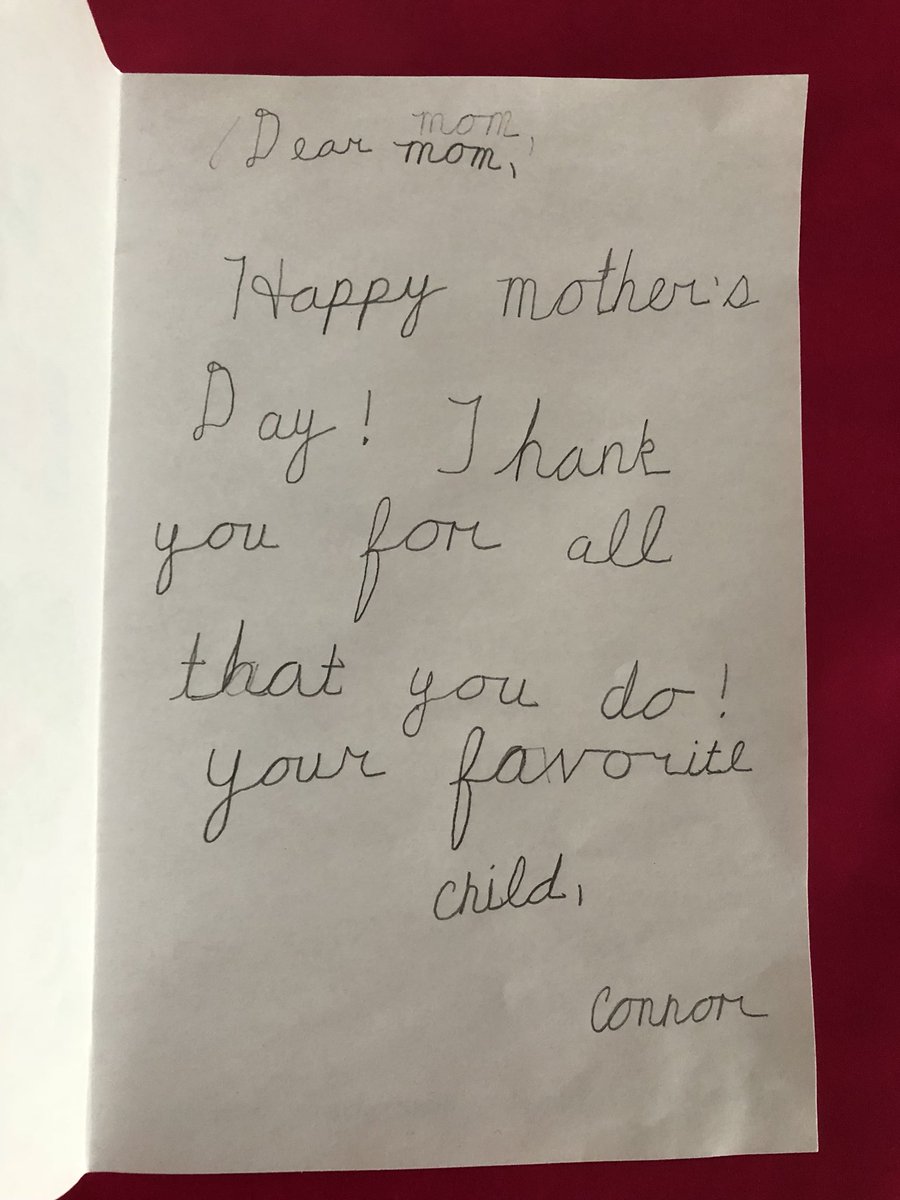 Dear mom,
mom,
Happy mother's
Day! Thank
you for all
that you do!
your favorite
child,
Connor